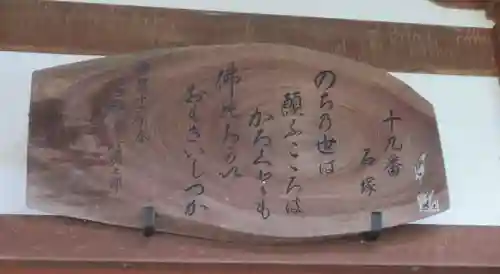 十九番
石塚
のちの世は
願ふこころは
かろくとも
佛のちかい
おもきいしつか